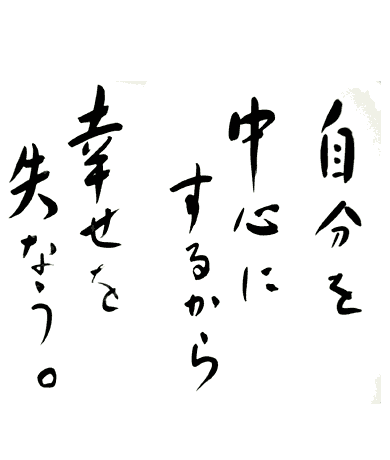 自分を
中心に
するから
幸せを
失なう。